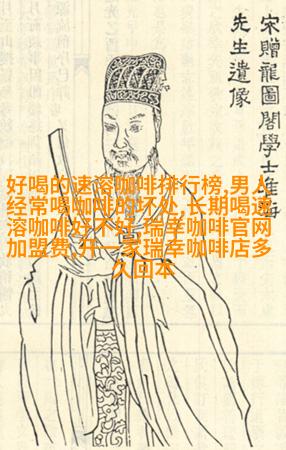 宋贈龍圖閣學士淮海
先生遺像
好喝的速溶咖啡排行榜,男人
经常喝咖啡的坏处,长期喝速
溶咖啡好不好,瑞幸咖啡官网
加盟费,开一家瑞幸咖啡店多
久回本